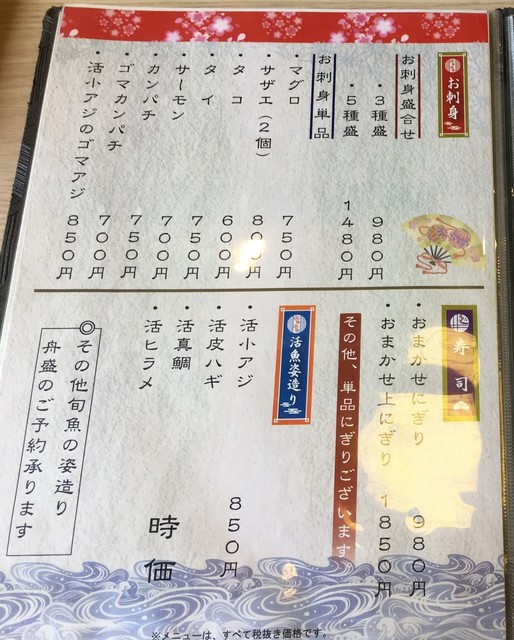 お刺身
お刺身盛合せ
・3種盛 980円
・5種盛 1480円
お刺身単品
・マグロ 750円
・サザエ(2個) 800円
・タコ 600円
・タイ 750円
・サーモン 700円
・カンパチ 750円
・ゴマカンパチ 700円
・活小アジのゴマアジ 850円
寿司
・おまかせにぎり 980円
・おまかせ上にぎり 1850円
その他、単品にぎりございます。
活魚姿造り
・活小アジ 850円
・活皮ハギ
・活真鯛
・活ヒラメ
時価
◎その他旬魚の姿造り
舟盛のご予約承ります
※メニューは、すべて税抜き価格です。